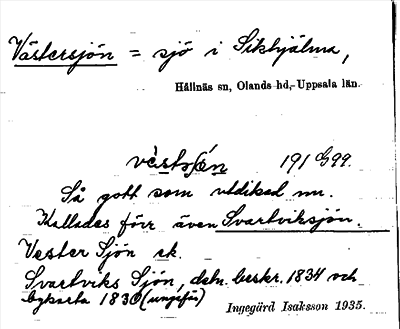 Västersjön = sjö i Sikhjälma,
Hållnäs sn, Olands hd, Uppsala län.
191 G99.
Så gott som utdikad nu.
Kallades förr även Svartviksjön.
Vester Sjön ek.
Svartviks Sjön, detn. beskr. 1834 och
bykarta 1830 (ungefär)
Ingegärd Isaksson 1935.